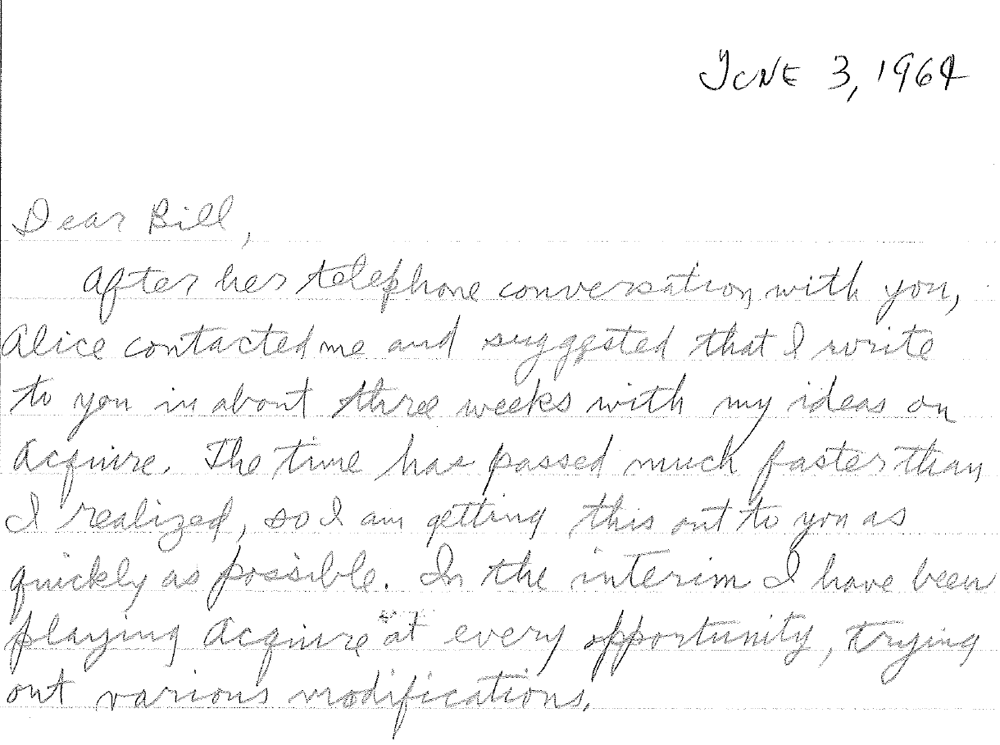 JUNE 3, 1964
Dear Bill,
After her telephone conversation with you,
Alice contacted me and suggested that I write
to you in about three weeks with my ideas on
Acquire. The time has passed much faster than
I realized, so I am getting this out to you as
quickly as possible. In the interim I have been
playing Acquire at every opportunity, trying
out various modifications.